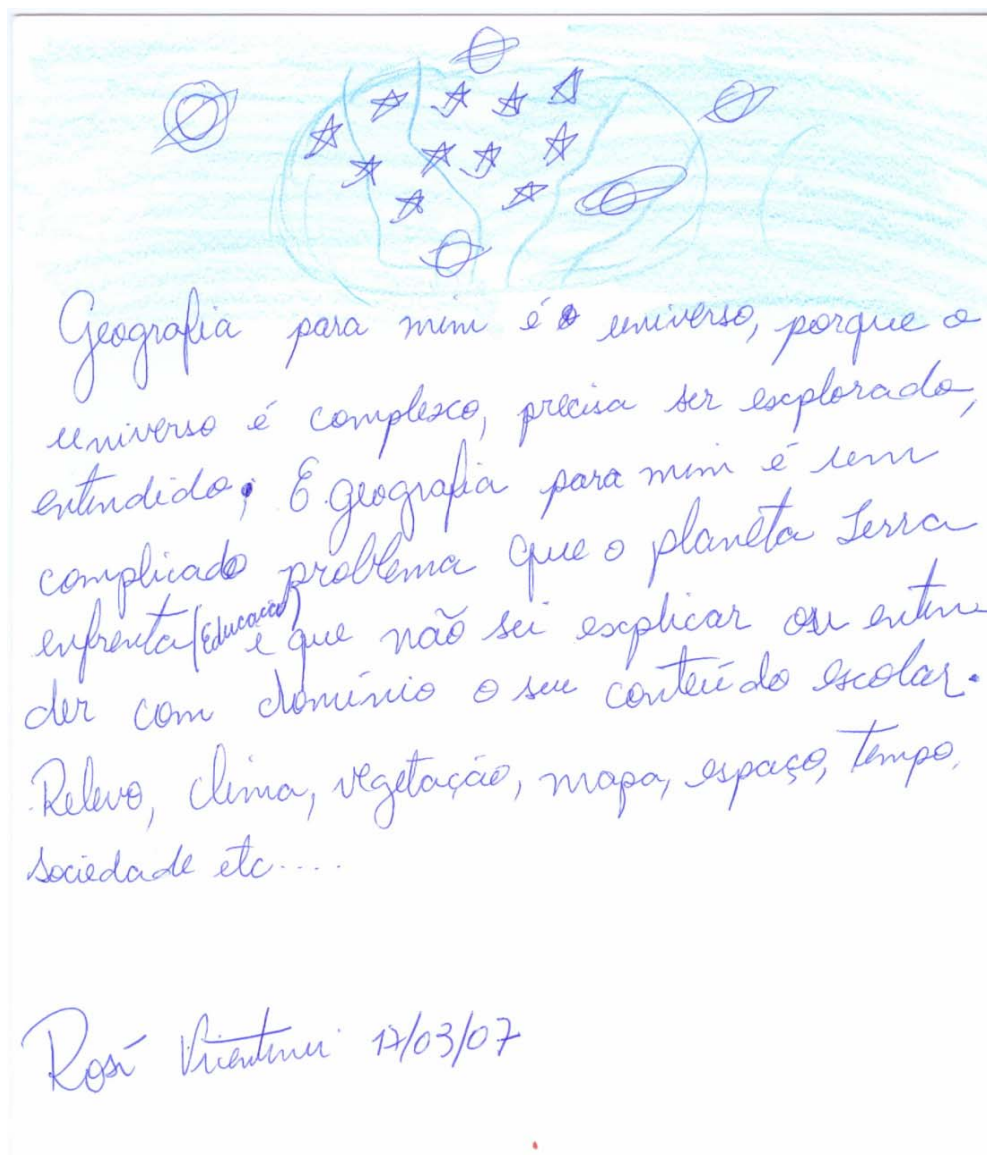 Geografia para mim é o universo, porque o
universo é complexo, precisa ser explorado,
entendido; E geografia para mim é um
complicado problema que o planeta Terra
enfrenta (Educação) e que não sei explicar ou enten
der com domínio o seu conteúdo escolar.
Relevo, clima, vegetação, mapa, espaço, tempo,
sociedade etc....
Rosi 17/03/07